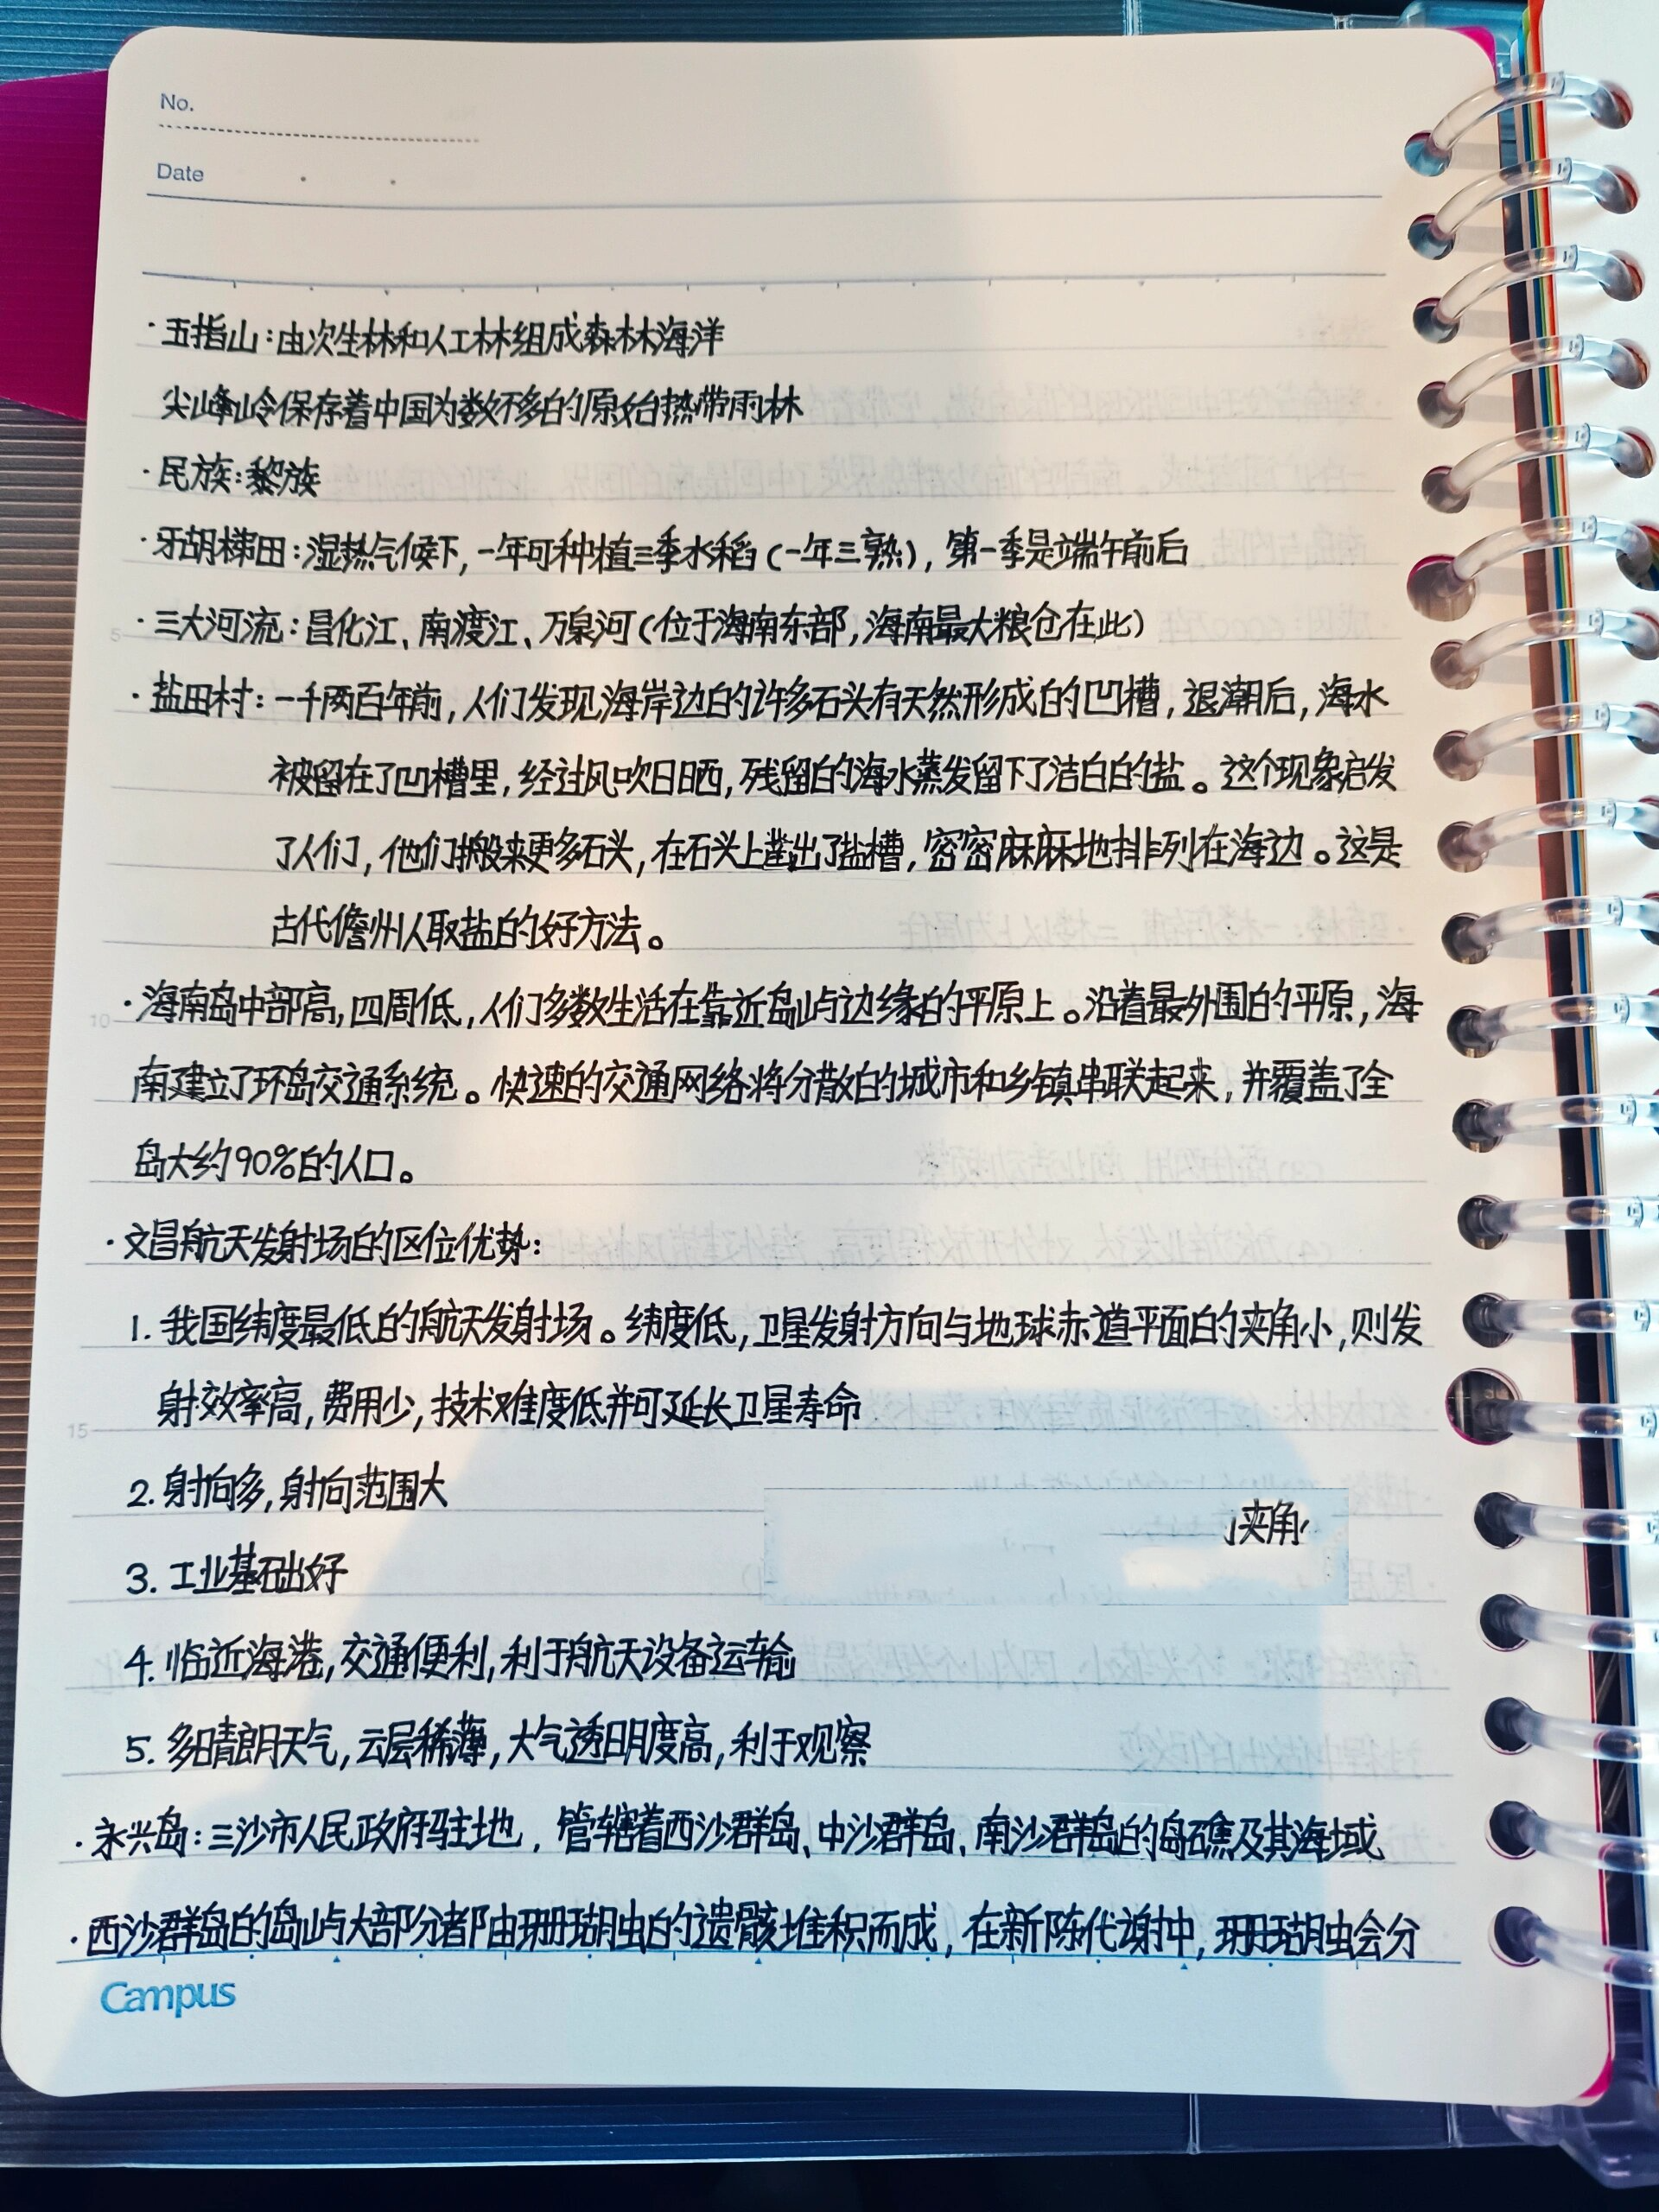 No.
Date
·五指山:由次生林和人工林组成森林海洋
尖峰岭保存着中国为数不多的原始热带雨林
·民族:黎族
·牙胡梯田:湿热气候下,一年可种植三季水稻(一年三熟),第一季是端午前后
·三大河流:昌化江、南渡江、万泉河(位于海南东部,海南最大粮仓在此)
5
·盐田村:一千两百年前,人们发现海岸边的许多石头有天然形成的凹槽,退潮后,海水
被留在了凹槽里,经过风吹日晒,残留的海水蒸发留下了洁白的盐。这个现象启发
了人们,他们搬来更多石头,在石头上凿出了盐槽,密密麻麻地排列在海边。这是
古代儋州人取盐的好方法。
·海南岛中部高,四周低,人们多数生活在靠近岛屿边缘的平原上。沿着最外围的平原,海
10
南建立了环岛交通系统。快速的交通网络将分散的城市和乡镇串联起来,并覆盖了全
岛大约90%的人口。
·文昌航天发射场的区位优势:
1. 我国纬度最低的航天发射场。纬度低,卫星发射方向与地球赤道平面的夹角小,则发
射效率高,费用少,技术难度低并可延长卫星寿命
15
2. 射向多,射向范围大
夹角
3. 工业基础好
4. 临近海港,交通便利,利于航天设备运输
5. 多晴朗天气,云层稀薄,大气透明度高,利于观察
·永兴岛:三沙市人民政府驻地,管辖着西沙群岛、中沙群岛、南沙群岛的岛礁及其海域
·西沙群岛的岛屿大部分都由珊瑚虫的遗骸堆积而成,在新陈代谢中,珊瑚虫会分
Campus